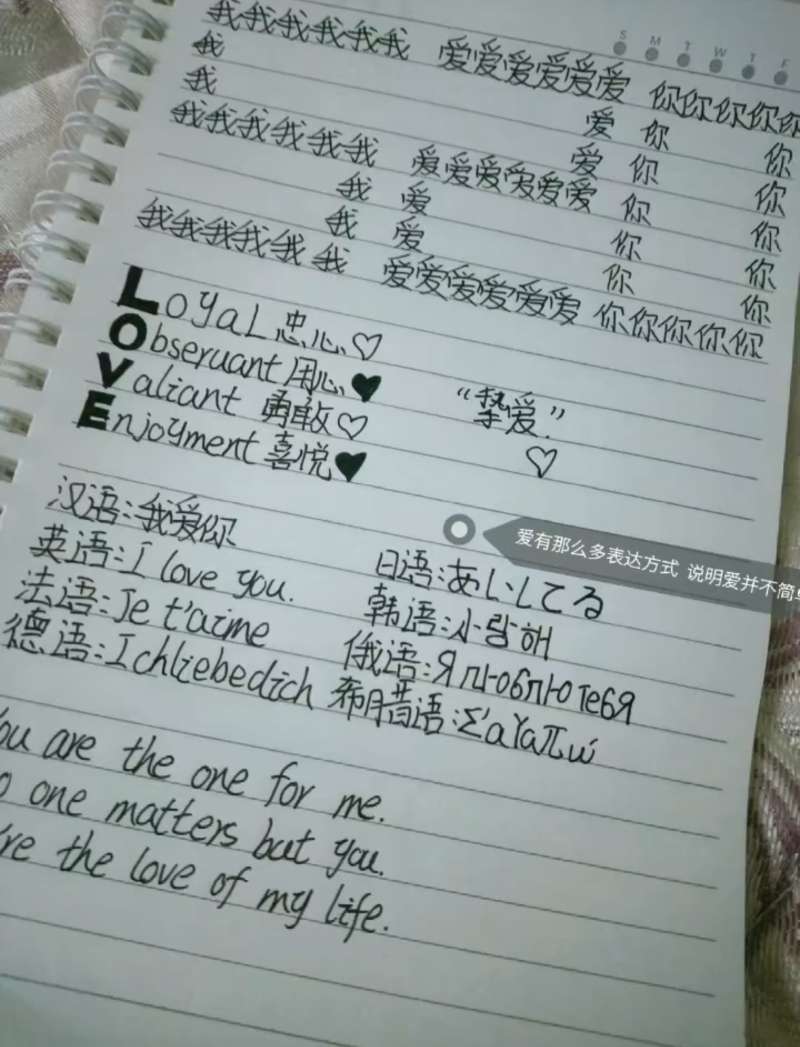 S M T W T F
我我我我我我 爱爱爱爱爱爱 你你你你你
我 爱 你 你
我 爱 你 你
我我我我我我 爱爱爱爱爱爱 你 你
我 爱 你 你
我 爱 你 你
我我我我我我 爱爱爱爱爱爱 你你你你你
LoyaL 忠心、♡
Observant 用心、♥
Valiant 勇敢♡
Enjoyment 喜悦♥
“挚爱”.
♡
爱有那么多表达方式 说明爱并不简单
汉语:我爱你
英语:I love you.
法语:Je t'aime
德语:Ichliebedich
日语:あいしてる
韩语:사랑해
俄语:Я люблю тебя
希腊语:Σ'αγαπώ
You are the one for me.
o one matters but you.
're the love of my life.